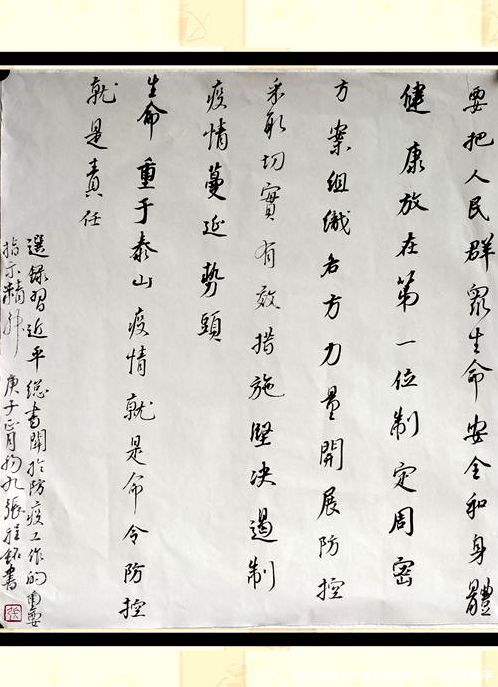 要把人民群眾生命安全和身體
健康放在第一位制定周密
方案組織各方力量開展防控
采取切實有效措施堅决遏制
疫情蔓延勢頭
生命重于泰山疫情就是命令防控
就是責任
選録習近平總書関於防疫工作的重要
指示精神 庚子正月初九張程銘書
張